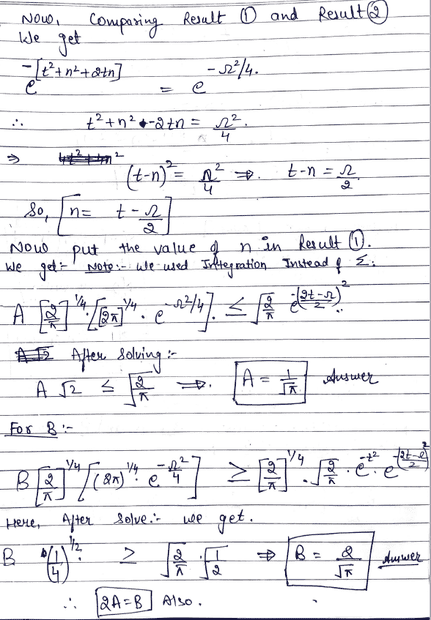 Now, Comparing Result ① and Result ②
We get
e^-[t²+n²+2tn] = e^-Ω²/4.
∴ t²+n² -2tn = Ω²/4
⇒ (t-n)² = Ω²/4 ⇒. t-n = Ω/2.
So, [n= t-Ω/2]
Now put the value of n in Result ①.
We get:- Note:- We used Integration Instead of Σ.
A [2/π]^1/4 · [(2π)^1/4 · e^-Ω²/4]. ≤ √2/π e^-((2t-Ω)/2)².
After Solving:-
A √2 ≤ √2/π ⇒. A = 1/√π Answer
For B:-
B [2/π]^1/4 [(2π)^1/4 · e^-Ω²/4] ≥ [2/π]^1/4 · √2/π · e^-t² · e
Here, After Solve:- we get.
B (1/4)^1/2 · ≥ √2/π · √1/2 ⇒ B = 2/√π Answer
∴ 2A=B Also.